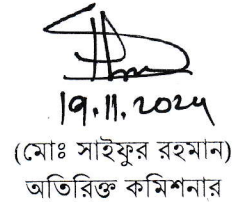 19.11.2024
(মোঃ সাইফুর রহমান)
অতিরিক্ত কমিশনার